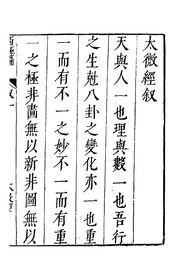 太微經叙
天與人一也理與數一也吾行
之生尅八卦之變化亦一也重
一而有不一之妙不一而有重
一之極非畫無以新非圖無以